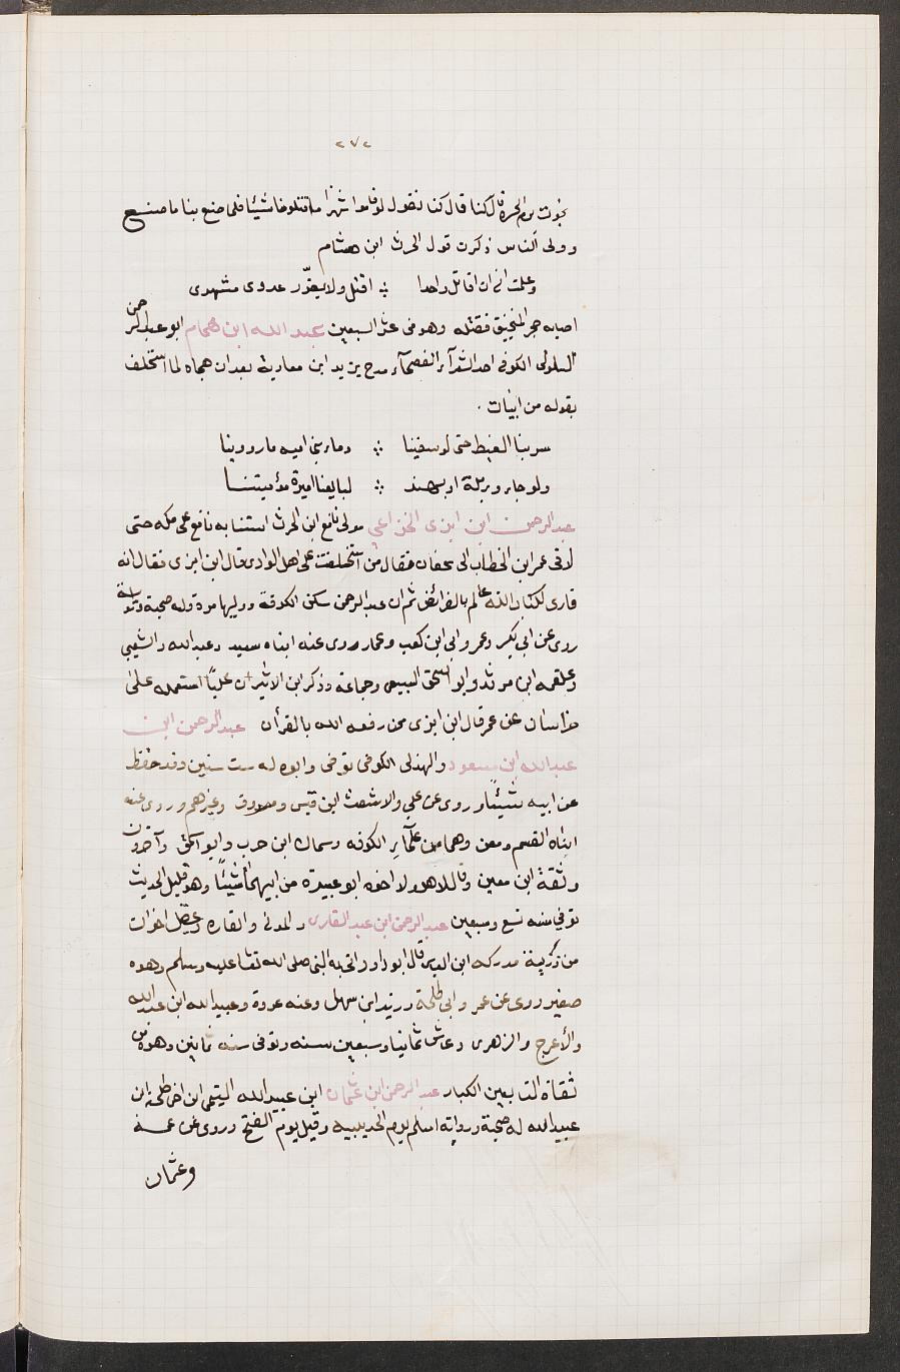 ٢٧٢
بجوت يوم الحرة قال كنا قال كنا نقول لو قاموا شهرا ما قتلوا منا شيئا فلما صنع بنا ما صنع
وولى الناس ذكرت قول الحرث ابن هشام
وعلمت انى ان اقاتل واحدا ∴ اقتل ولا يضرر عدوى مشهدى
اصابه حجر المنجنيق فقتله وهو فى عشر السبعين عبد الله ابن همام ابو عبد الرحمن
السلولى الكوفى احد الشعرآء الفصحآء مدح يزيد ابن معاوية بعد ان هجاه لما استخلف
بقوله من ابيات .
سربنا الغيظ حتى لو سقينا ∴ دماء بنى اميه ما روينا
ولو جاءو برملة او بهند ∴ لبايعنا اميرة مؤمنينا
عبد الرحمن ابن ابزى الخزاعي مولى نافع ابن الحرث استنابه نافع على مكه حتى
لاقى عمر ابن الخطاب الى عسفان فقال من استخلفت على اهل الوادى قال ابن ابزى فقال انه
قارى لكتاب الله عالم بالفرائض ثم ان عبد الرحمن سكن الكوفة ووليها مرة وله صحبة ورواية
روى عن ابي بكر وعمر وابى ابن كعب وعمار وروى عنه ابناه سعيد وعبد الله والشعبي
وعلقمه ابن مرثد وابو اسحق السبيعى وجماعة وذكر ابن الاثير ان عليًا استعمله على
خراسان عن عمر قال ابن ابزى ممن رفعه الله بالقرأن عبد الرحمن ابن
عبد الله ابن مسعود والهذلى الكوفى توفى وابوه له ست سنين وقد حفظ
عن ابيه شيئًا وروى عن علي والاشعث ابن قيس ومسروق وغيرهم وروى عنه
ابناه القسم ومعن وهما من علمآء الكوفه وسماك ابن حرب وابو اسحق وآخرون
وثقة ابن معين وقال لا هو ولا اخوه ابو عبيدة من ابيهما شيئًا وهو قليل الحديث
توفي سنه تسع وسبعين عبد الرحمن ابن عبد القارى والمدنى والقاره وعضل اخوات
من ذرية مدركه ابن الياس قال ابو داود اتى به النبى صلى الله تعا عليه وسلم وهوه
صغير وروى عن عمر وابي طلحة وزيد ابن سهل وعنه عروة وعبيد الله ابن عبد الله
والأعرج والزهرى وعاش ثمانيا وسبعين سنه وتوفى سنه ثمانين وهو من
ثقاة التابعين الكبار عبد الرحمن ابن عثمان ابن عبيد الله التيمى ابن اخى طلحة ابن
عبيد الله له صحبة ورواية اسلم يوم الحديبيه وقيل يوم الفتح وروى عن عمه
وعثمان